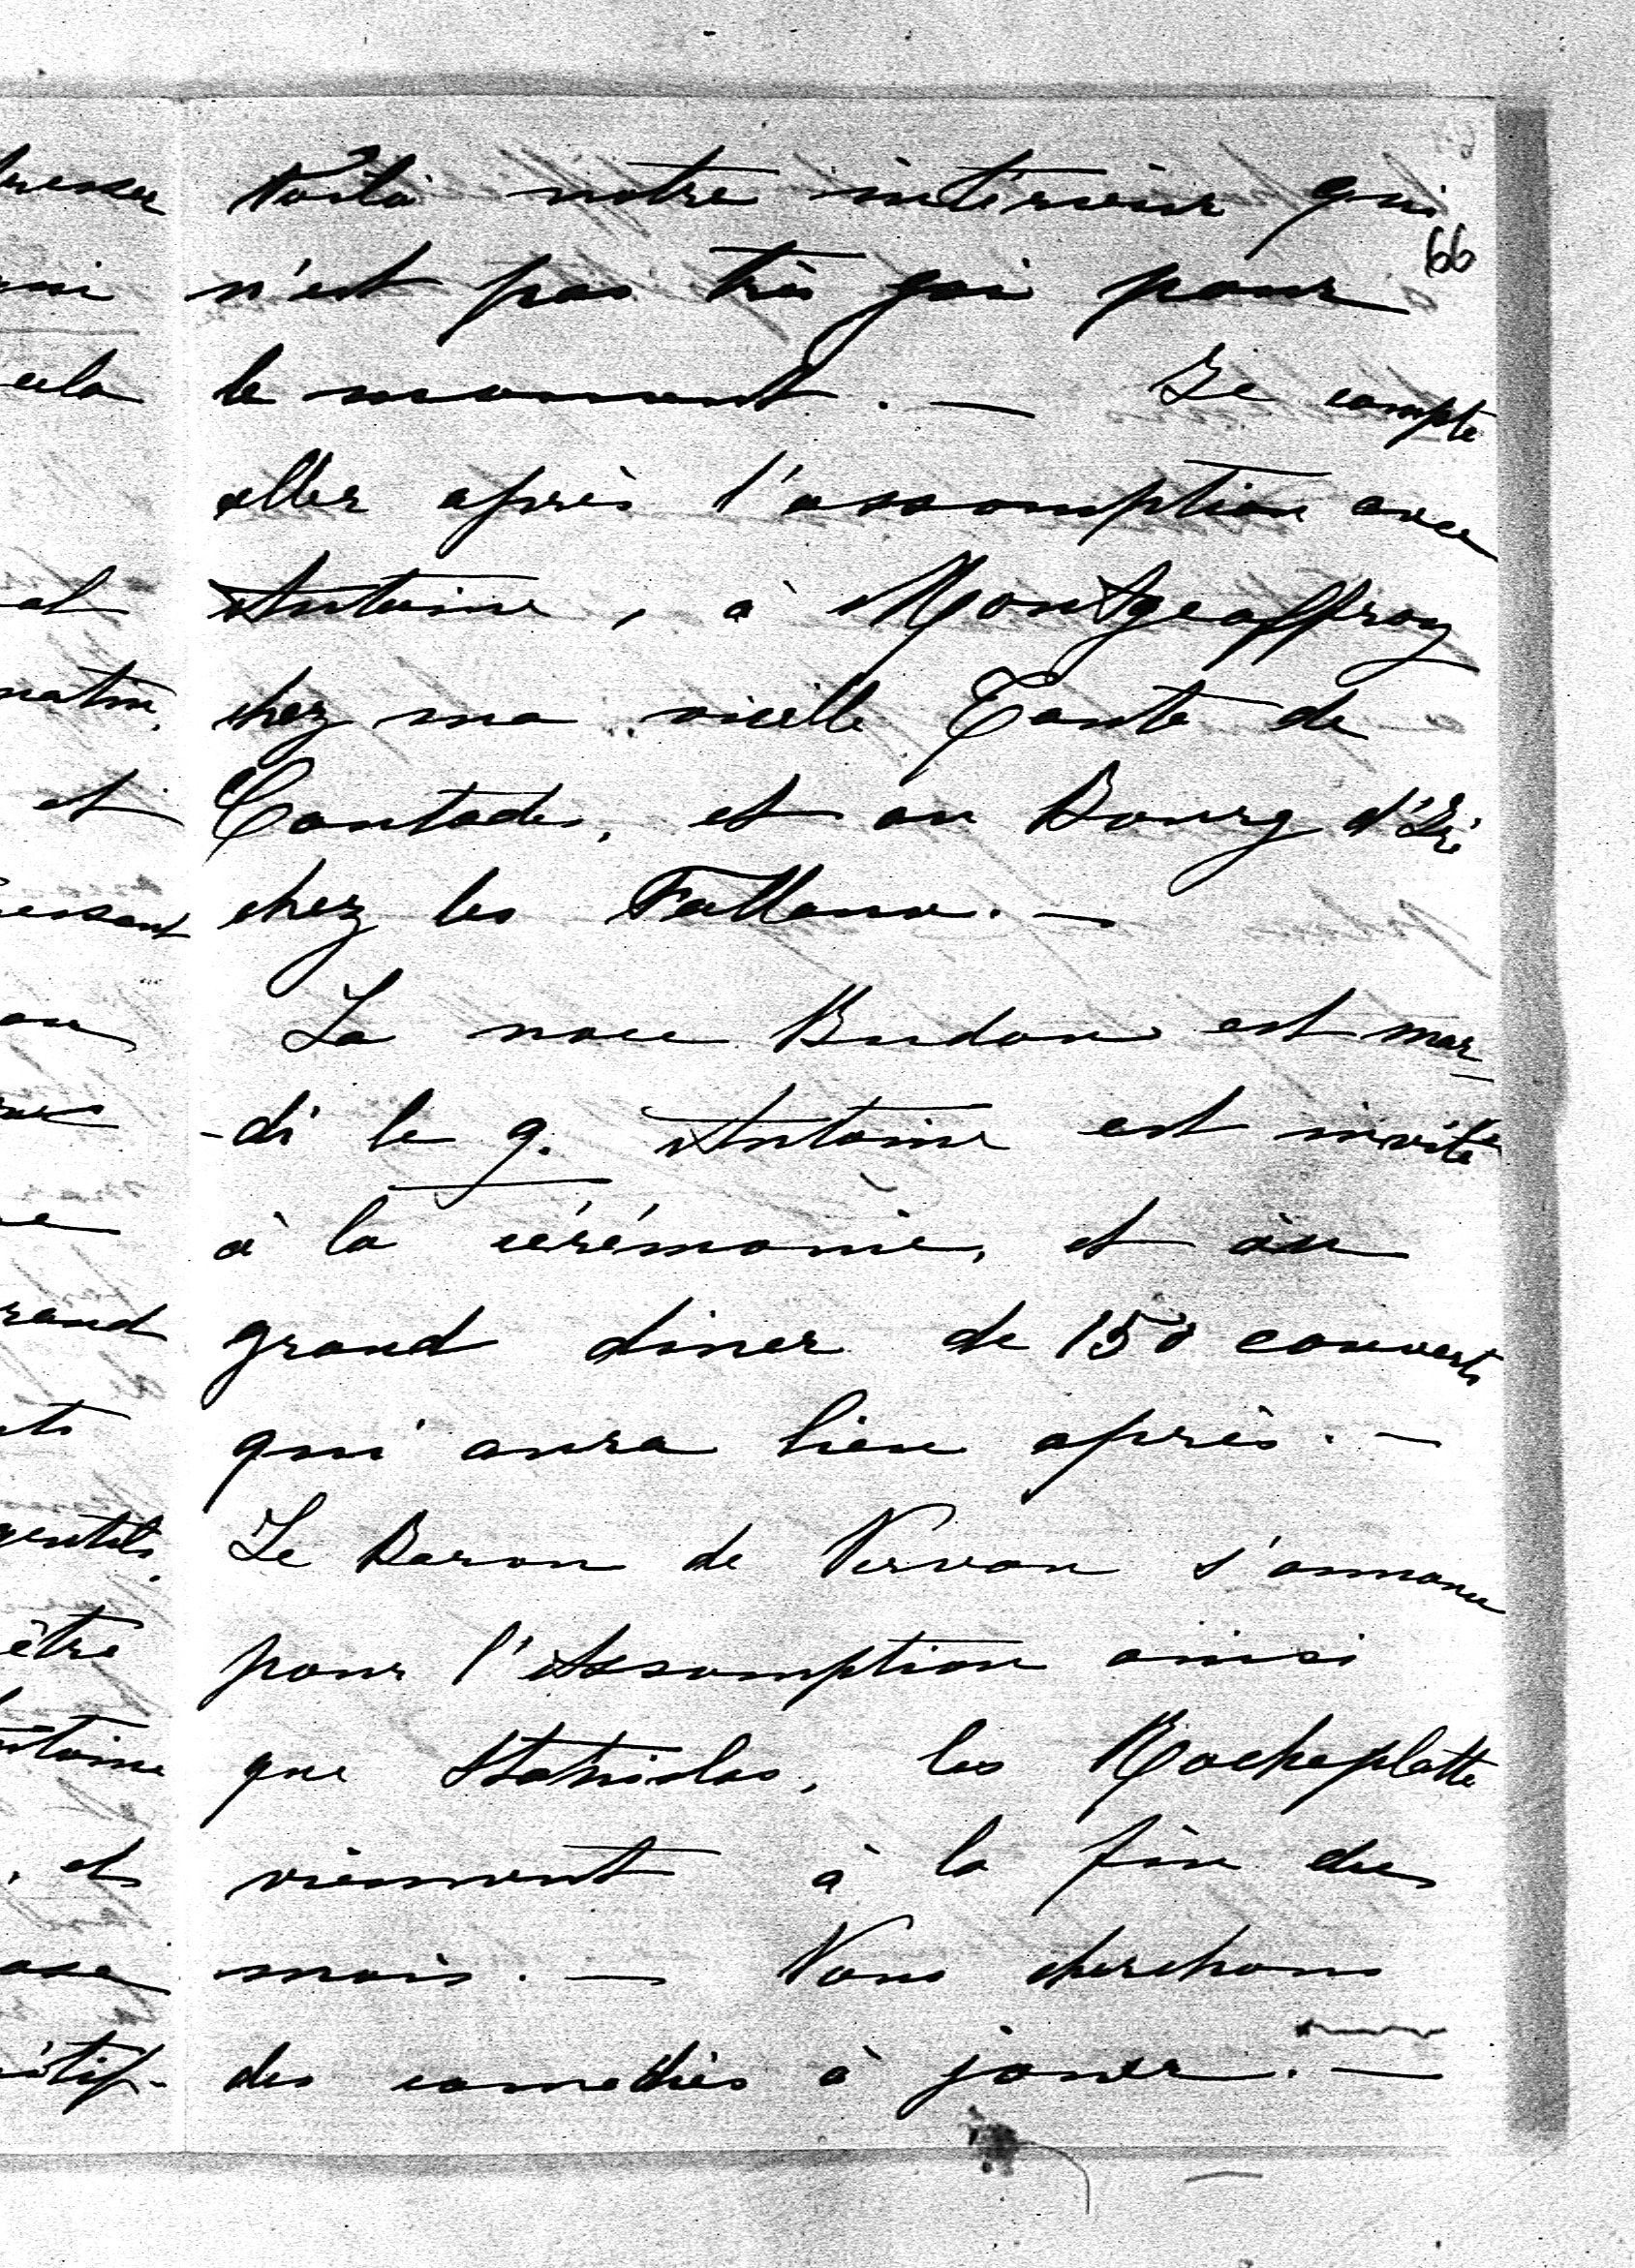 Voilà notre intérieur qui
66
n'est pas très gai pour
le moment. — Je compte
aller après l'assomption avec
Antoine, à Montgeoffroy
chez ma vieille Tante de
Contades, et au Bourg d'Iré
chez les Falloux. —
La noce Budan est mar
-di le 9. Antoine est invité
à la cérémonie, et au
grand diner de 150 couverts
qui aura lieu après. —
Le Baron de Vervon s'annonce
pour l'Assomption ainsi
que Stanislas, les Rocheplatte
viennent à la fin du
mois. — Nous cherchons
des comédies à jouer. —